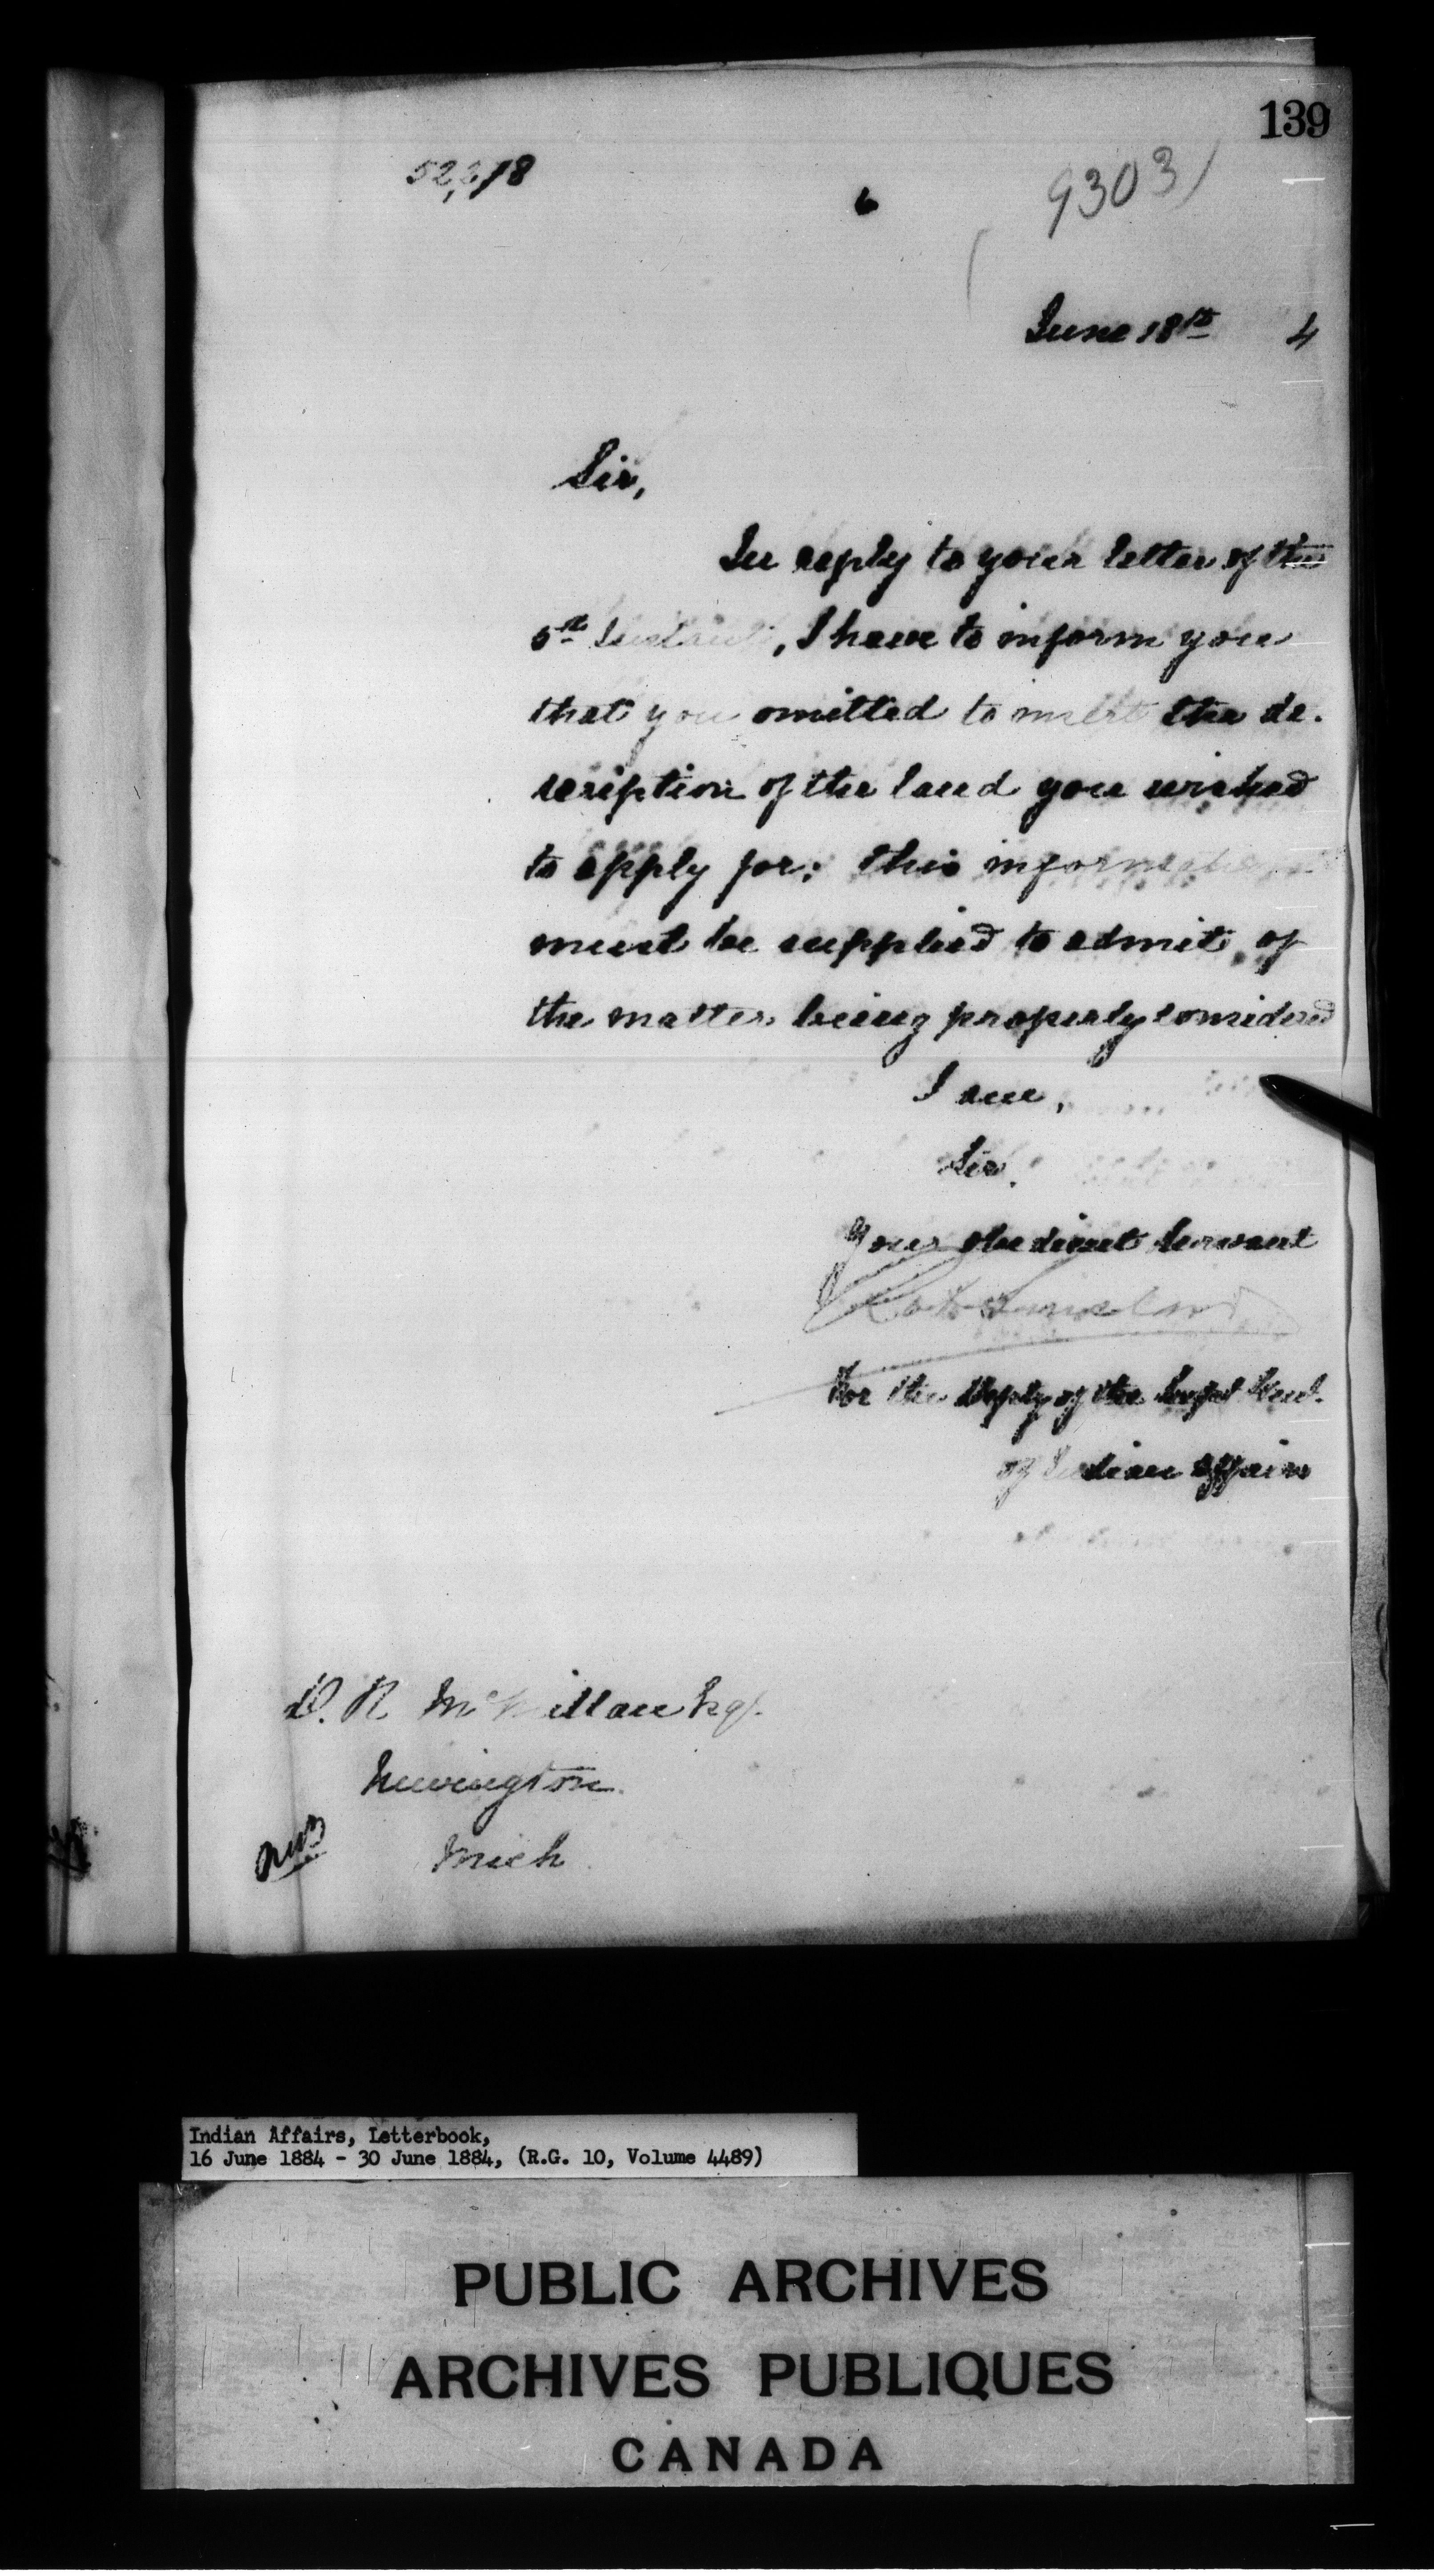 139
9303
June 18th 4
Sir,
In reply to your letter of the
5th Instant, I have to inform you
that you omitted to insert the de-
scription of the land you wished
to apply for; this information
must be supplied to admit of
the matter being properly considered
I am,
Sir,
Your obedient Servant
For the Depty of the Supt Genl.
of Indian Affairs
D. R McMillan Esq.
Newington
Mich
Indian Affairs, Letterbook,
16 June 1884 - 30 June 1884, (R.G. 10, Volume 4489)
PUBLIC ARCHIVES
ARCHIVES PUBLIQUES
CANADA